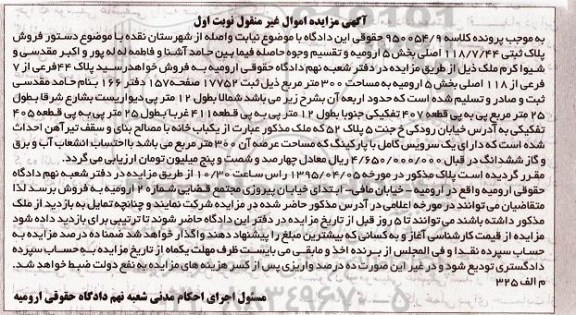 آگهی مزایده اموال غیر منقول نوبت اول
به موجب پرونده کلاسه 950054/9 حقوقی این دادگاه با موضوع نیابت واصله از شهرستان نقده با موضوع دستور فروش
پلاک ثبتی 118/7/44 اصلی بخش 5 ارومیه و تقسیم وجوه حاصله فیما بین حامد آشنا و فاطمه له له پور و اکبر مقدسی و
شیوا کرم ملک ذیل از طریق مزایده در دفتر شعبه نهم دادگاه حقوقی ارومیه به فروش خواهد رسید پلاک 44 فرعی از 7
فرعی از 118 اصلی بخش 5 ارومیه به مساحت 300 متر مربع ذیل ثبت 17752 صفحه 157 دفتر 166 بنام حامد مقدسی
ثبت و صادر و تسلیم شده است که حدود اربعه آن بشرح زیر می باشد شمالا بطول 12 متر پی دیواریست بشارع شرقا بطول
25 متر مربع پی به پی قطعه 407 تفکیکی جنوبا بطول 12 متر پی به پی قطعه 411 غربا بطول 25 متر پی به پی قطعه 405
تفکیکی به آدرس خیابان رودکی خ جنت 5 پلاک 52 که ملک مذکور عبارت از یکباب خانه با مصالح بنای و سقف تیرآهن احداث
شده است که دارای یک سرویس کامل با پارکینگ که مساحت عرصه آن 300 متر مربع می باشد با احتساب انشعاب آب و برق
و گاز ششدانگ در قبال 4/650/000/000 ریال معادل چهارصد و شصت و پنج میلیون تومان ارزیابی می گردد.
مقرر گردیده است پلاک مذکور در مورخه 1395/04/05 راس ساعت 10/30 از طریق مزایده در دفتر شعبه نهم دادگاه
حقوقی ارومیه واقع در ارومیه - خیابان مافی- ابتدای خیابان پیروزی مجتمع قضایی شماره 2 ارومیه به فروش برسد لذا
متقاضیان می توانند در مورخه اعلامی در آدرس مذکور حاضر شده در مزایده شرکت نمایند و چنانچه تمایل به بازدید از ملک
مذکور داشته باشند می توانند تا 5 روز قبل از تاریخ مزایده در دفتر این دادگاه حاضر شوند تا ترتیبی برای بازدید داده شود
مزایده از قیمت کارشناسی آغاز و به کسانی که بیشترین مبلغ را پیشنهاد دهند واگذار خواهد شد ضمنا ده درصد مزایده به
حساب سپرده نقدا و فی المجلس از برنده اخذ و مابقی می بایست ظرف مهلت یکماه از تاریخ مزایده به حساب سپرده
دادگستری تودیع شود و در غیر این صورت ده درصد واریزی پس از کسر هزینه های مزایده به نفع دولت ضبط خواهد شد.
م الف 325
مسئول اجرای احکام مدنی شعبه نهم دادگاه حقوقی ارومیه